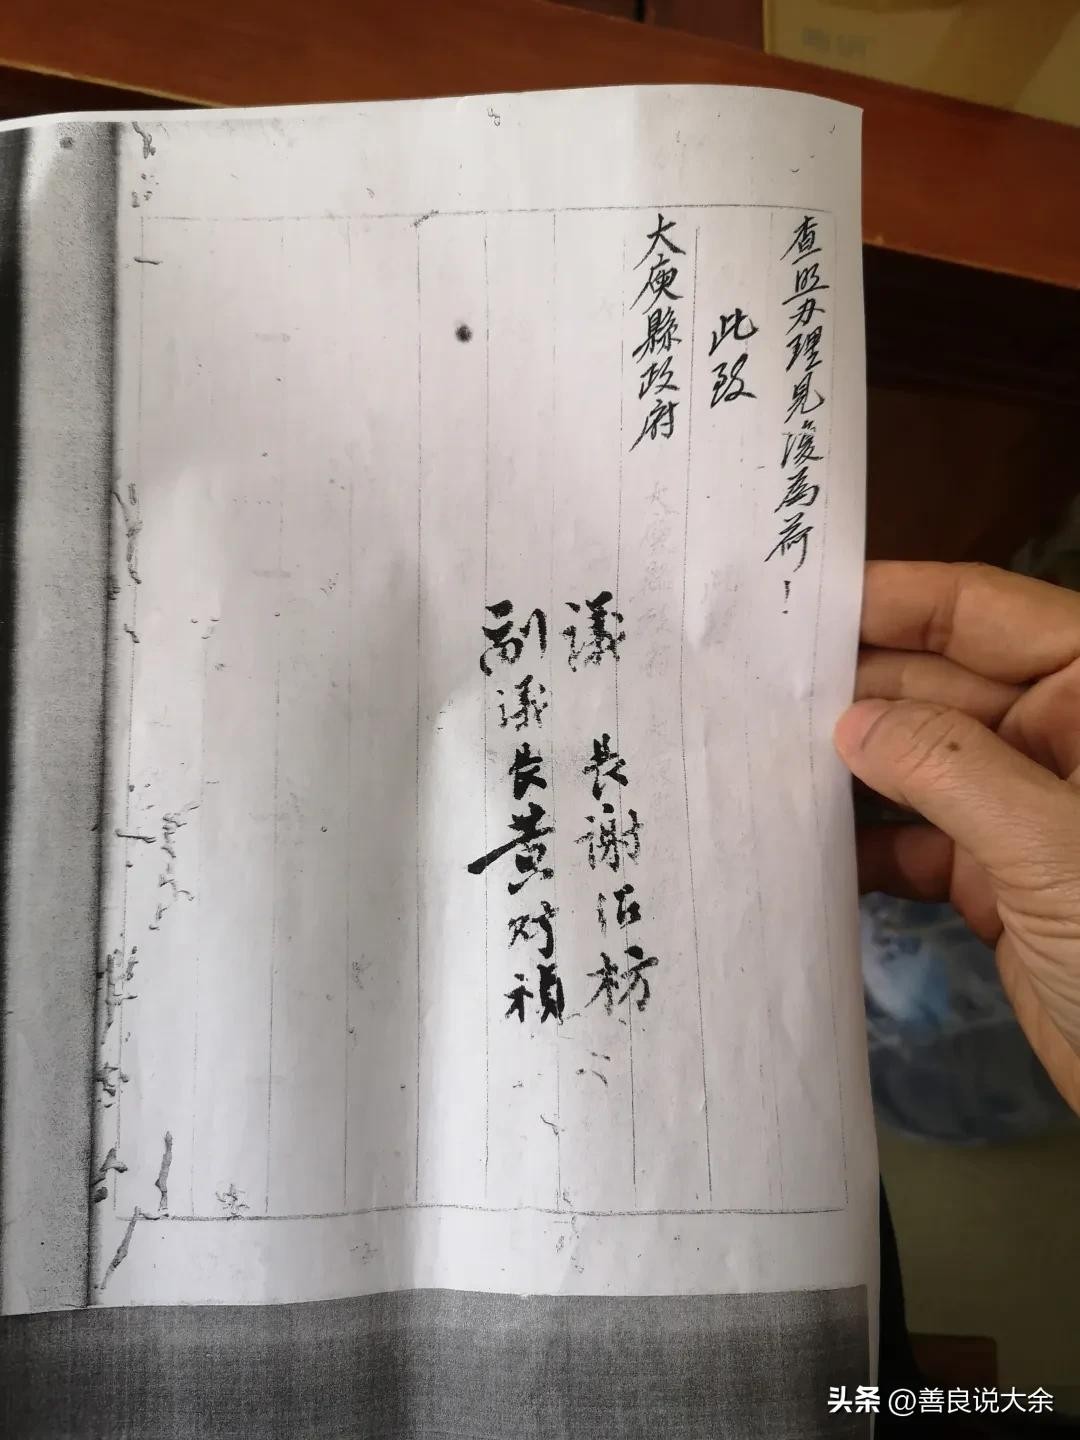 查照办理見復為荷！
此致
大庾縣政府
議長謝治枋
副議長黃对禎
头条 @善良说大余